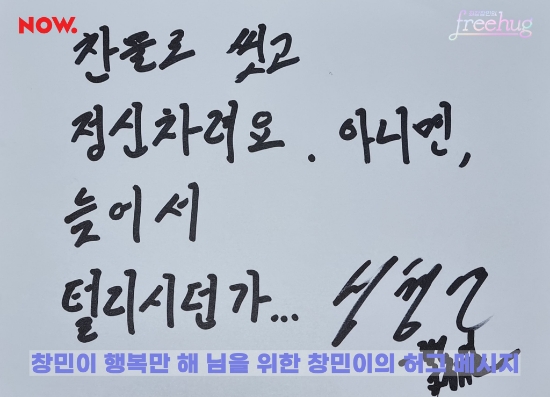 NOW.
freehug
찬물로 씻고
정신차려요. 아니면,
늦어서
털리시던가...
창민이 행복만 해 님을 위한 창민이의 허그 메시지